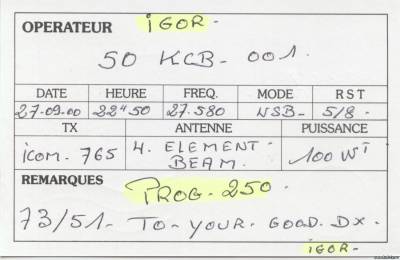 OPERATEUR IGOR-
50 KCB- 001.
DATE HEURE FREQ. MODE RST
27-09.00 22H50 27.580 USB- 5/8-
TX ANTENNE PUISSANCE
icom. 765 4. ELEMENT- 100 WT
BEAM.
REMARQUES PROG-250-
73/51- TO-YOUR-GOOD.DX-
IGOR-